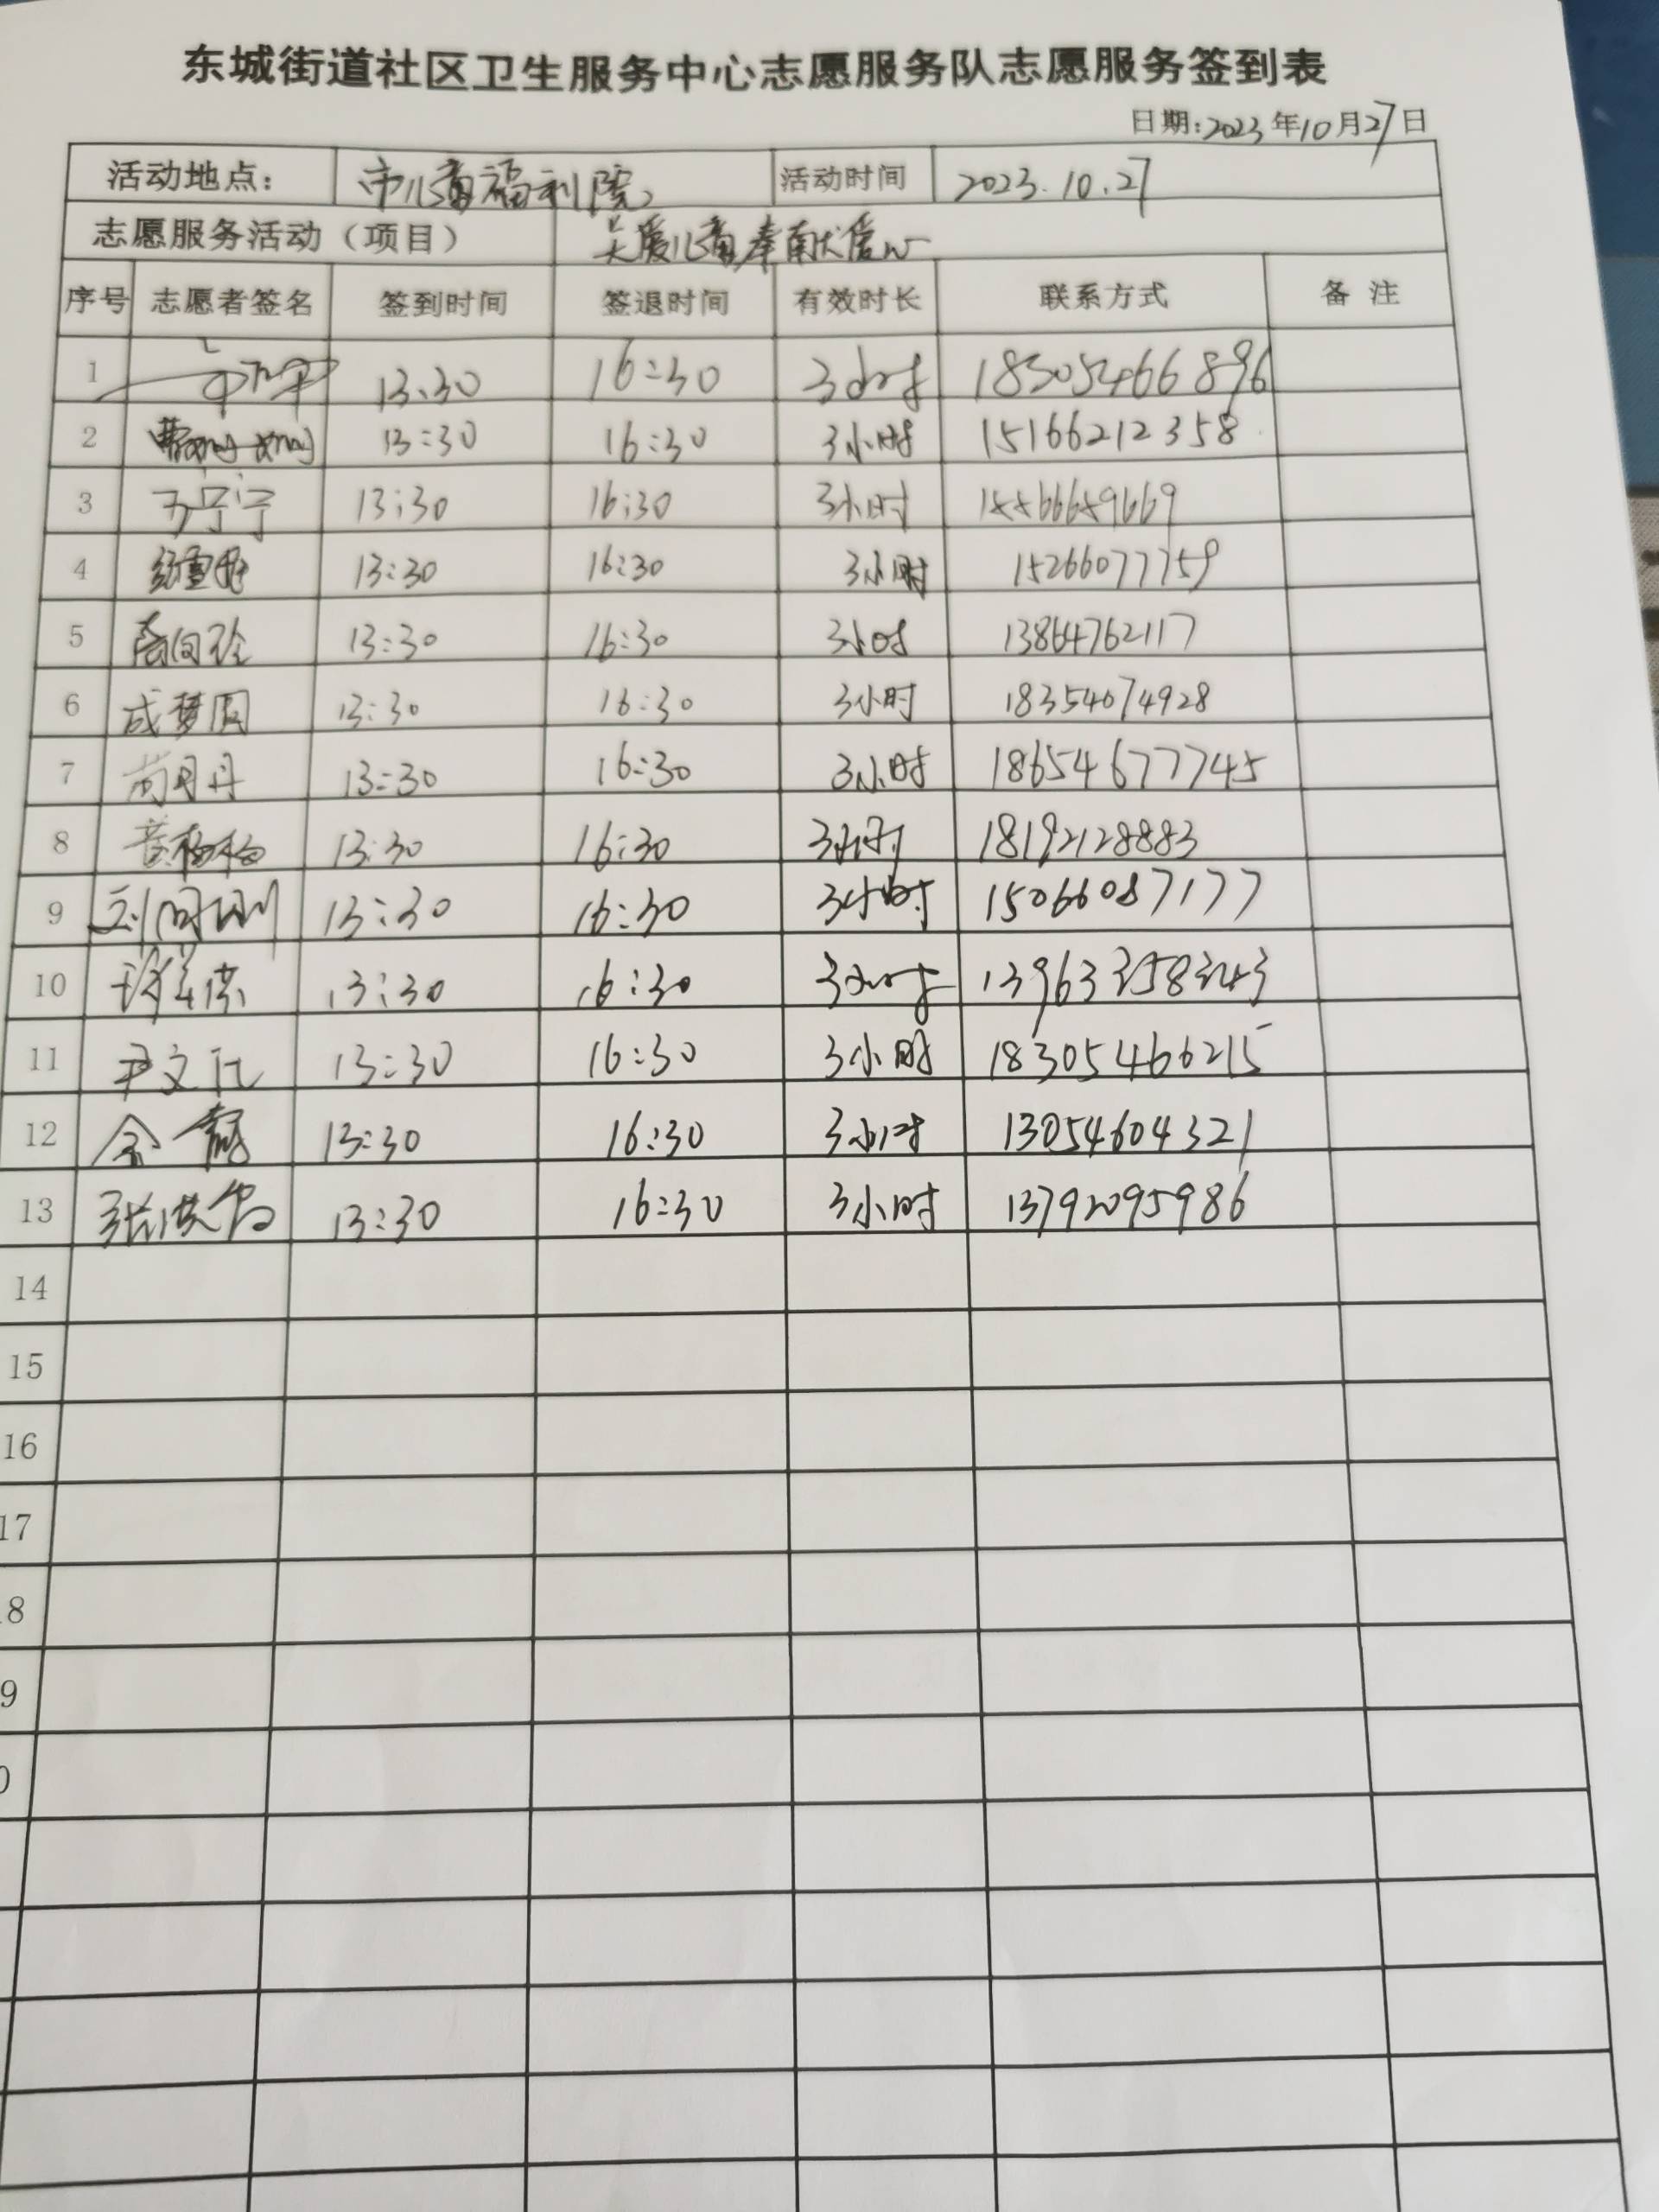 东城街道社区卫生服务中心志愿服务队志愿服务签到表
日期:2023年10月27日
活动地点: 市儿童福利院 活动时间 2023.10.27
志愿服务活动（项目） 关爱儿童奉献爱心
序号 志愿者签名 签到时间 签退时间 有效时长 联系方式 备注
1 13:30 16:30 3小时 18305466896
2 13:30 16:30 3小时 15166212358
3 13:30 16:30 3小时
4 13:30 16:30 3小时 15266077759
5 13:30 16:30 3小时 13864762117
6 成梦圆 13:30 16:30 3小时 18354674928
7 13:30 16:30 3小时 18654677745
8 13:30 16:30 3小时 18192128883
9 13:30 16:30 3小时 15066087177
10 13:30 16:30 3小时
11 13:30 16:30 3小时 18305466215
12 13:30 16:30 3小时 13054604321
13 13:30 16:30 3小时 13792095986
14
15
16
17
8
9
0